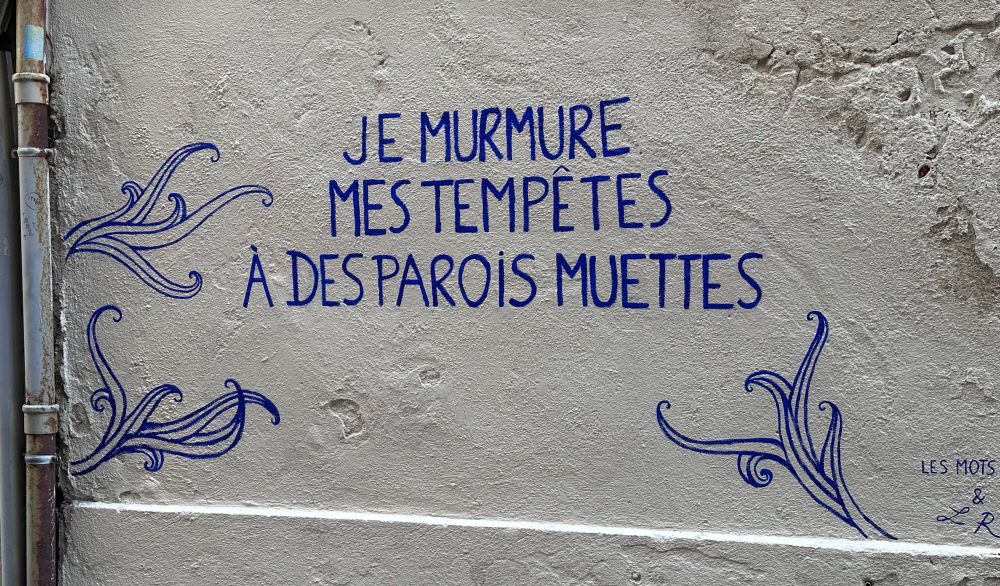 JE MURMURE
MES TEMPÊTES
À DES PAROIS MUETTES
LES MOTS
&
L R